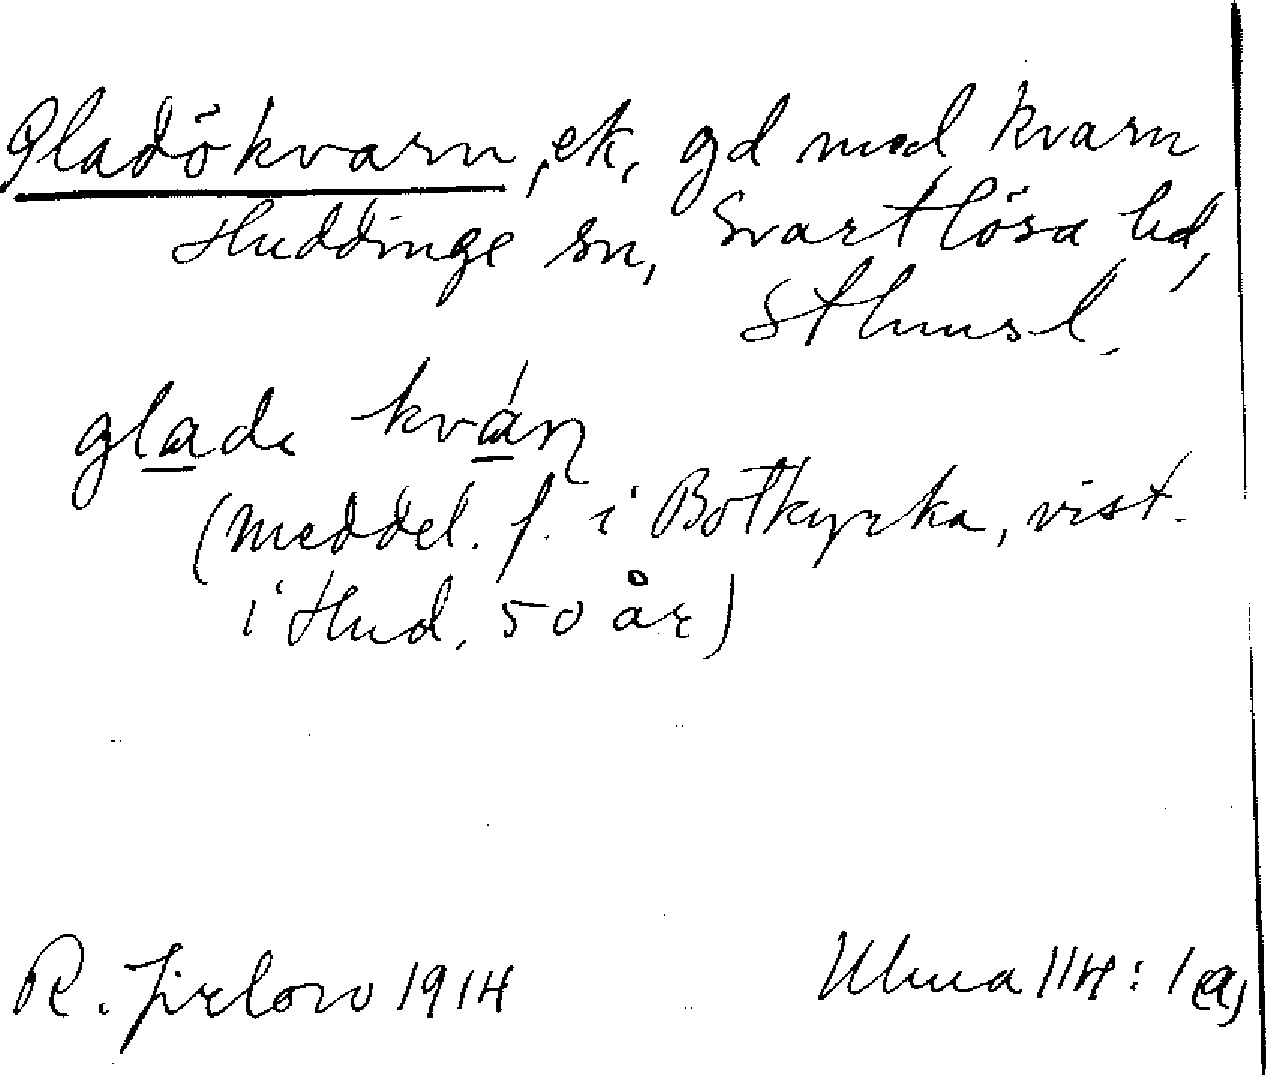 Gladökvarn, ek, gd med kvarn
Huddinge sn, Svartlösa hd,
Sthmsl.
glade kván
(meddel. f. i Botkyrka, vist.
i Hud. 50 år)
R. Jirlow 1914
Ulma 114:1(a)